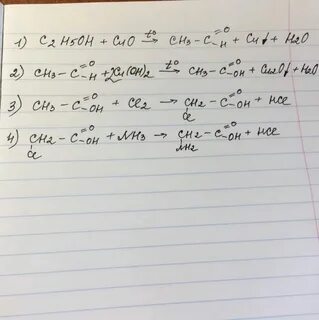 1) C2H5OH + CuO →t° CH3-C(=O)-H + Cu↓ + H2O
2) CH3-C(=O)-H + 2Cu(OH)2 →t° CH3-C(=O)-OH + Cu2O↓ + H2O
3) CH3-C(=O)-OH + Cl2 → CH2(Cl)-C(=O)-OH + HCl
4) CH2(Cl)-C(=O)-OH + NH3 → CH2(NH2)-C(=O)-OH + HCl